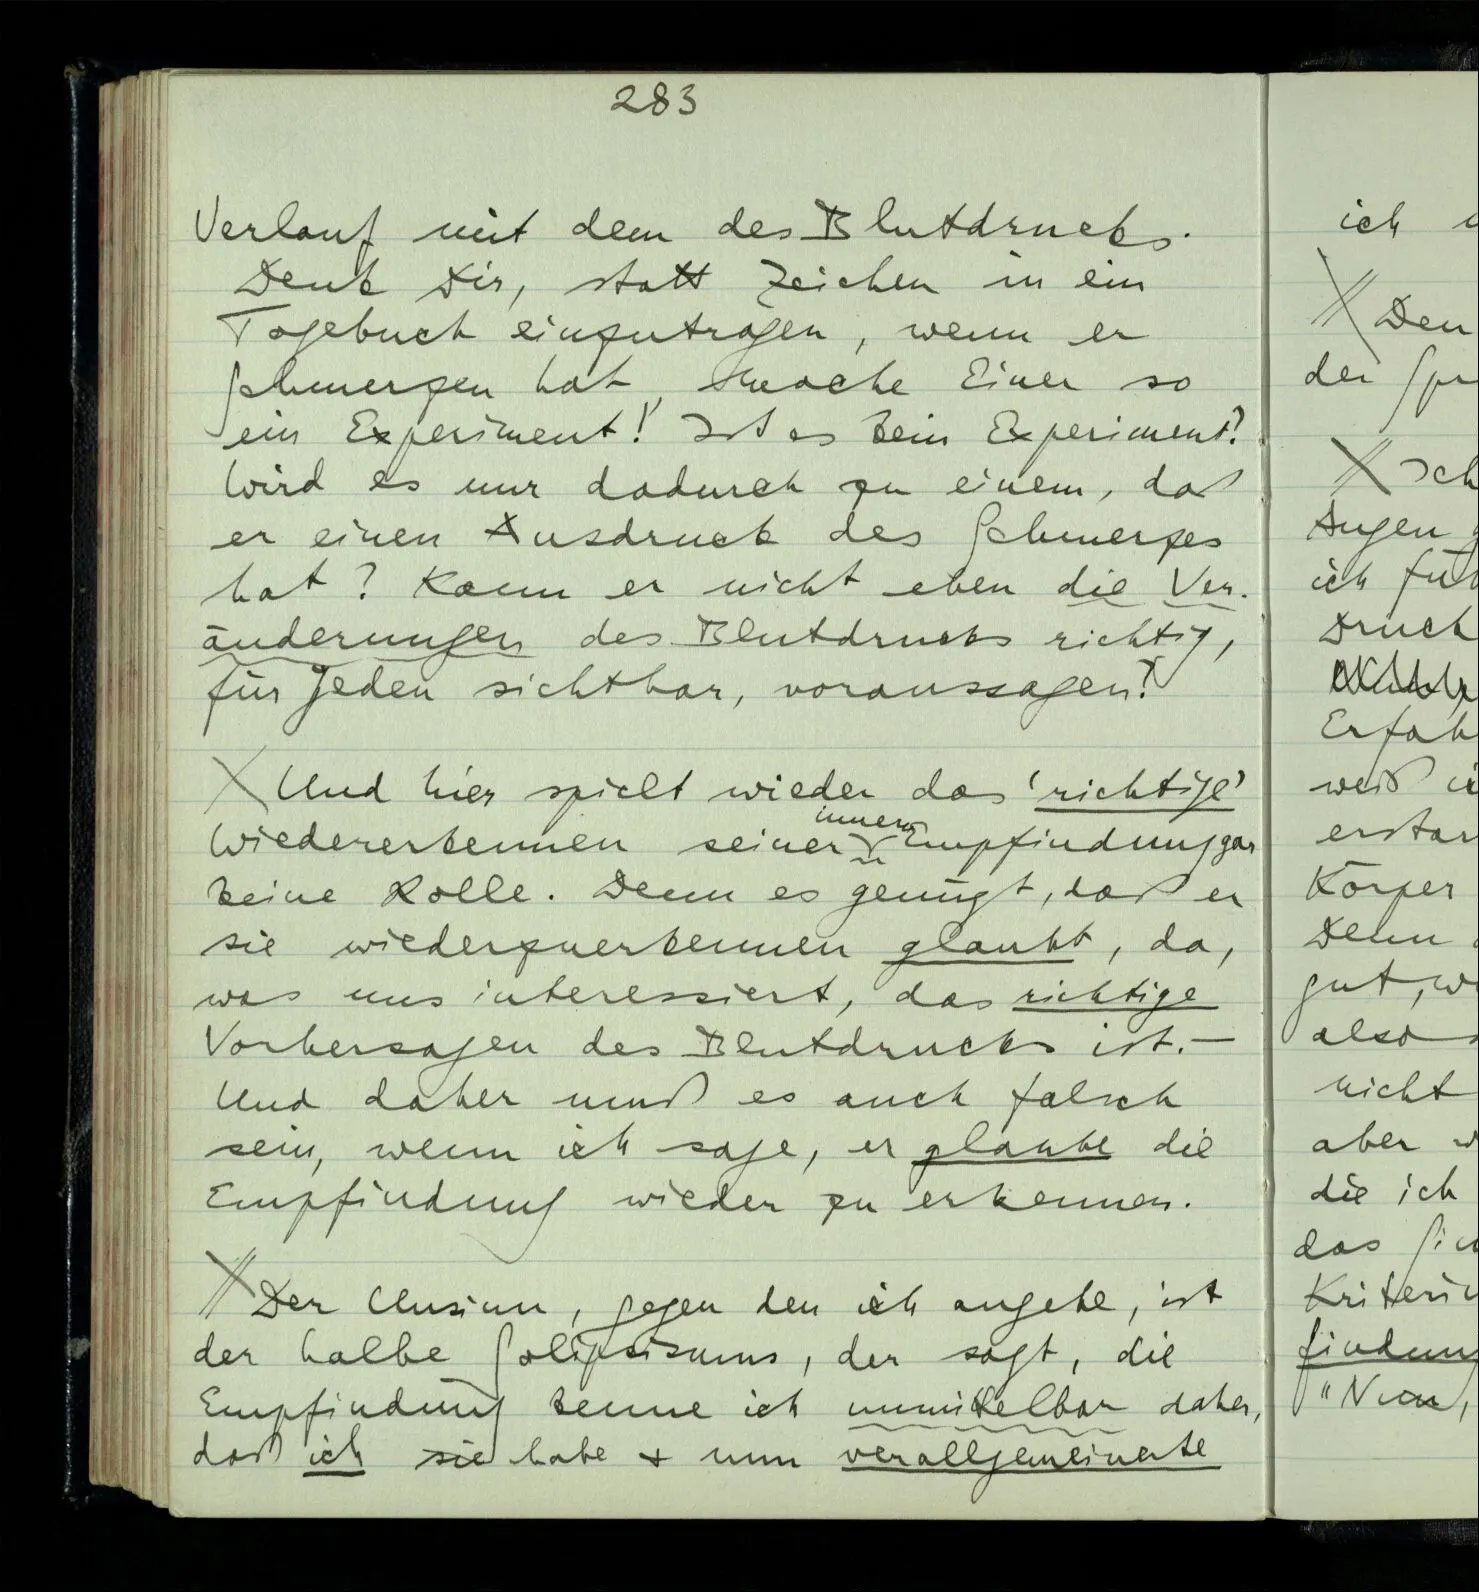 283
Verlauf mit dem des Blutdrucks.
Denk Dir, statt Zeichen in ein
Tagebuch einzutragen, wenn er
Schmerzen hat, mache Einer so
ein Experiment! Ist es kein Experiment?
Wird es nur dadurch zu einem, daß
er einen Ausdruck des Schmerzes
hat? Kann er nicht eben die Ver-
änderungen des Blutdrucks richtig,
für Jeden sichtbar, voraussagen?
Und hier spielt wieder das 'richtige'
innern
Wiedererkennen seiner Empfindung gar
keine Rolle. Denn es genügt, daß er
sie wiederzuerkennen glaubt, da,
was uns interessiert, das richtige
Vorhersagen des Blutdrucks ist. –
Und daher muß es auch falsch
sein, wenn ich sage, er glaube die
Empfindung wieder zu erkennen.
Der Unsinn, gegen den ich angehe, ist
der halbe Solipsismus, der sagt, die
Empfindung kenne ich unmittelbar daher,
daß ich sie habe + nun verallgemeinerte
ich
Den
der
Ich
Augen
ich
Druck
weiß
Körper
Denn
gut,
also
nicht
aber
die ich
das
"Nun,